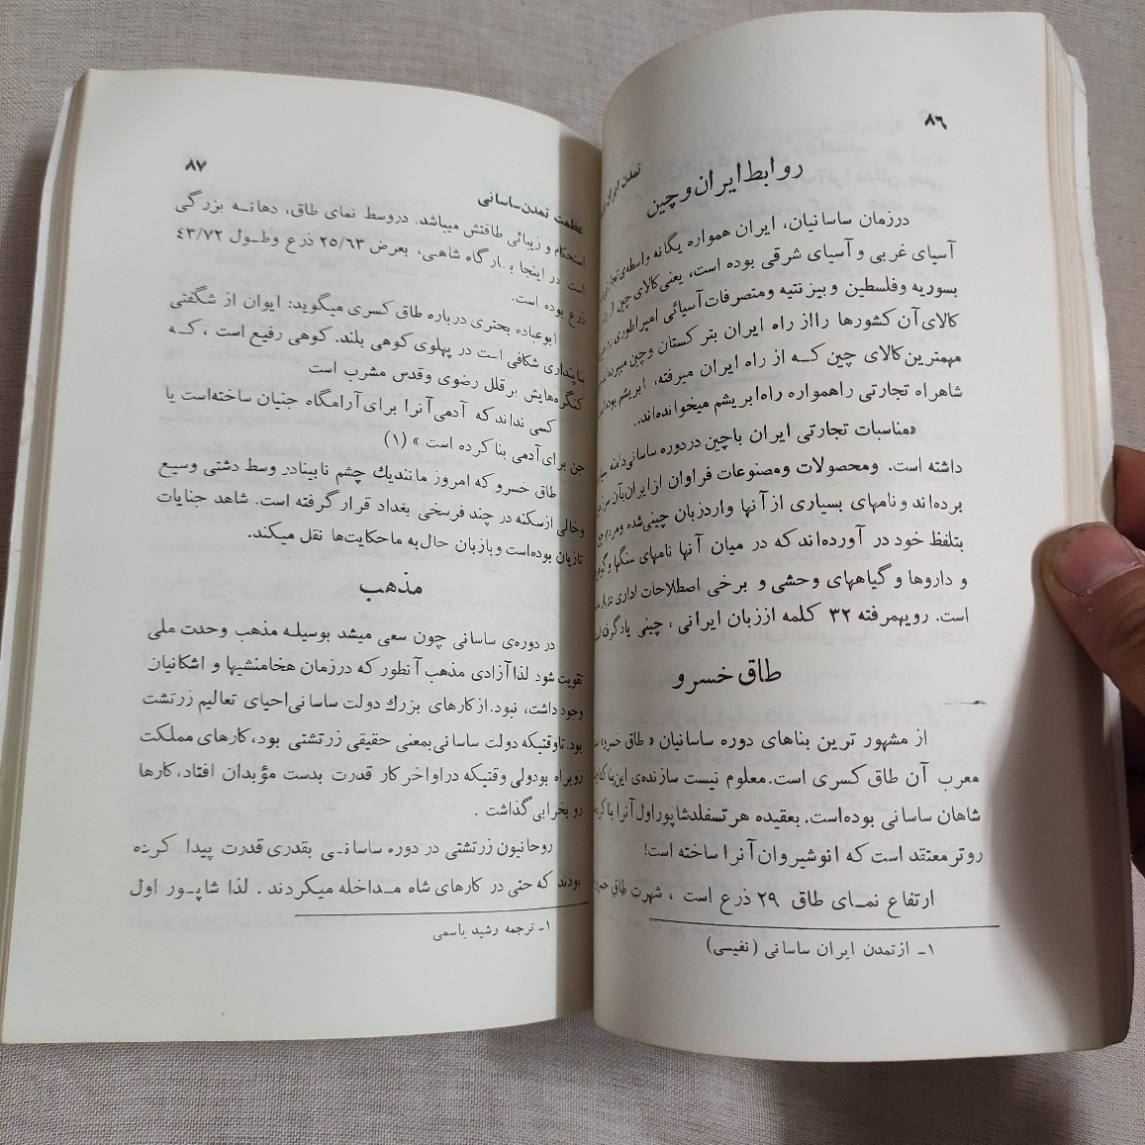 ۸۶
تمدن ایران
روابط ایران و چین
درزمان ساسانیان، ایران همواره یگانه واسطه‌ی
آسیای غربی و آسیای شرقی بوده است، یعنی کالای چین از
بسوریه وفلسطین و بیزنتیه ومتصرفات آسیائی امپراطوری
کالای آن کشورها رااز راه ایران بتر کستان وچین میبرد
مهمترین کالای چین کـه از راه ایران میرفته، ابریشم بوده
شاهراه تجارتی راهمواره راه ابریشم میخوانده‌اند..
«مناسبات تجارتی ایران باچین دردوره ساسانی دامنه
داشته است. ومحصولات ومصنوعات فراوان ازایران بآن
برده‌اند و نامهای بسیاری از آنها واردزبان چینی شده
بتلفظ خود در آورده‌اند که در میان آنها نامهای سنگها
و داروها و گیاههای وحشی و برخی اصطلاحات اداری
است. رویهمرفته ۳۲ کلمه اززبان ایرانی ، چینی
طاق خسرو
از مشهور ترین بناهای دوره ساسانیان « طاق خسرو»
معرب آن طاق کسری است. معلوم نیست سازنده‌ی این بنا
شاهان ساسانی بوده‌است. بعقیده هرتسفلدشاپوراول آنرا بنا
روتر معتقد است که انوشیروان آنرا ساخته است!
ارتفاع نمـای طاق ۲۹ ذرع است ، شهرت طاق
۱ـ ازتمدن ایران ساسانی (نفیسی)
۸۷
عظمت تمدن ساسانی
استحکام و زیبائی طاقش میباشد. دروسط نمای طاق، دهانـه بزرگی
است در اینجا بـارگاه شاهـی، بعرض ۲۵/۶۳ ذرع وطـول ۴۳/۷۲
ذرع بوده است.
ابوعباده بحتری درباره طاق کسری میگوید: ایوان از شگفتی
بناپنداری شکافی است در پهلوی کوهی بلند. کوهی رفیع است ، کـه
کنگره‌هایش برقلل رضوی وقدس مشرب است
کسی نداند که آدمی آنرا برای آرامگاه جنیان ساخته‌است یا
جن برای آدمی بنا کرده است » (۱)
طاق خسرو که امروز مانندیك چشم نابینادر وسط دشتی وسیع
وخالی ازسکنه در چند فرسخی بغداد قرار گرفته است. شاهد جنایات
تازیان بوده‌است و بازبان حال به ماحکایت‌ها نقل میکند.
مذهب
در دوره‌ی ساسانی چون سعی میشد بوسیلـه مذهب وحدت ملی
تقویت شود لذا آزادی مذهب آنطور که درزمان هخامنشیها و اشکانیان
وجود داشت، نبود. از کارهای بزرك دولت ساسانی احیای تعالیم زرتشت
بود. تاوقتیکه دولت ساسانی بمعنی حقیقی زرتشتی بود، کارهای مملکت
روبراه بودولی وقتیکه دراواخر کار قدرت بدست مؤبدان افتاد، کارها
رو بخرابی گذاشت .
روحانیون زرتشتی در دوره ساسانـی بقدری قدرت پیدا کرده
بودند که حتی در کارهای شاه مـداخله میکردند . لذا شاپـور اول
۱ـ ترجمه رشید یاسمی